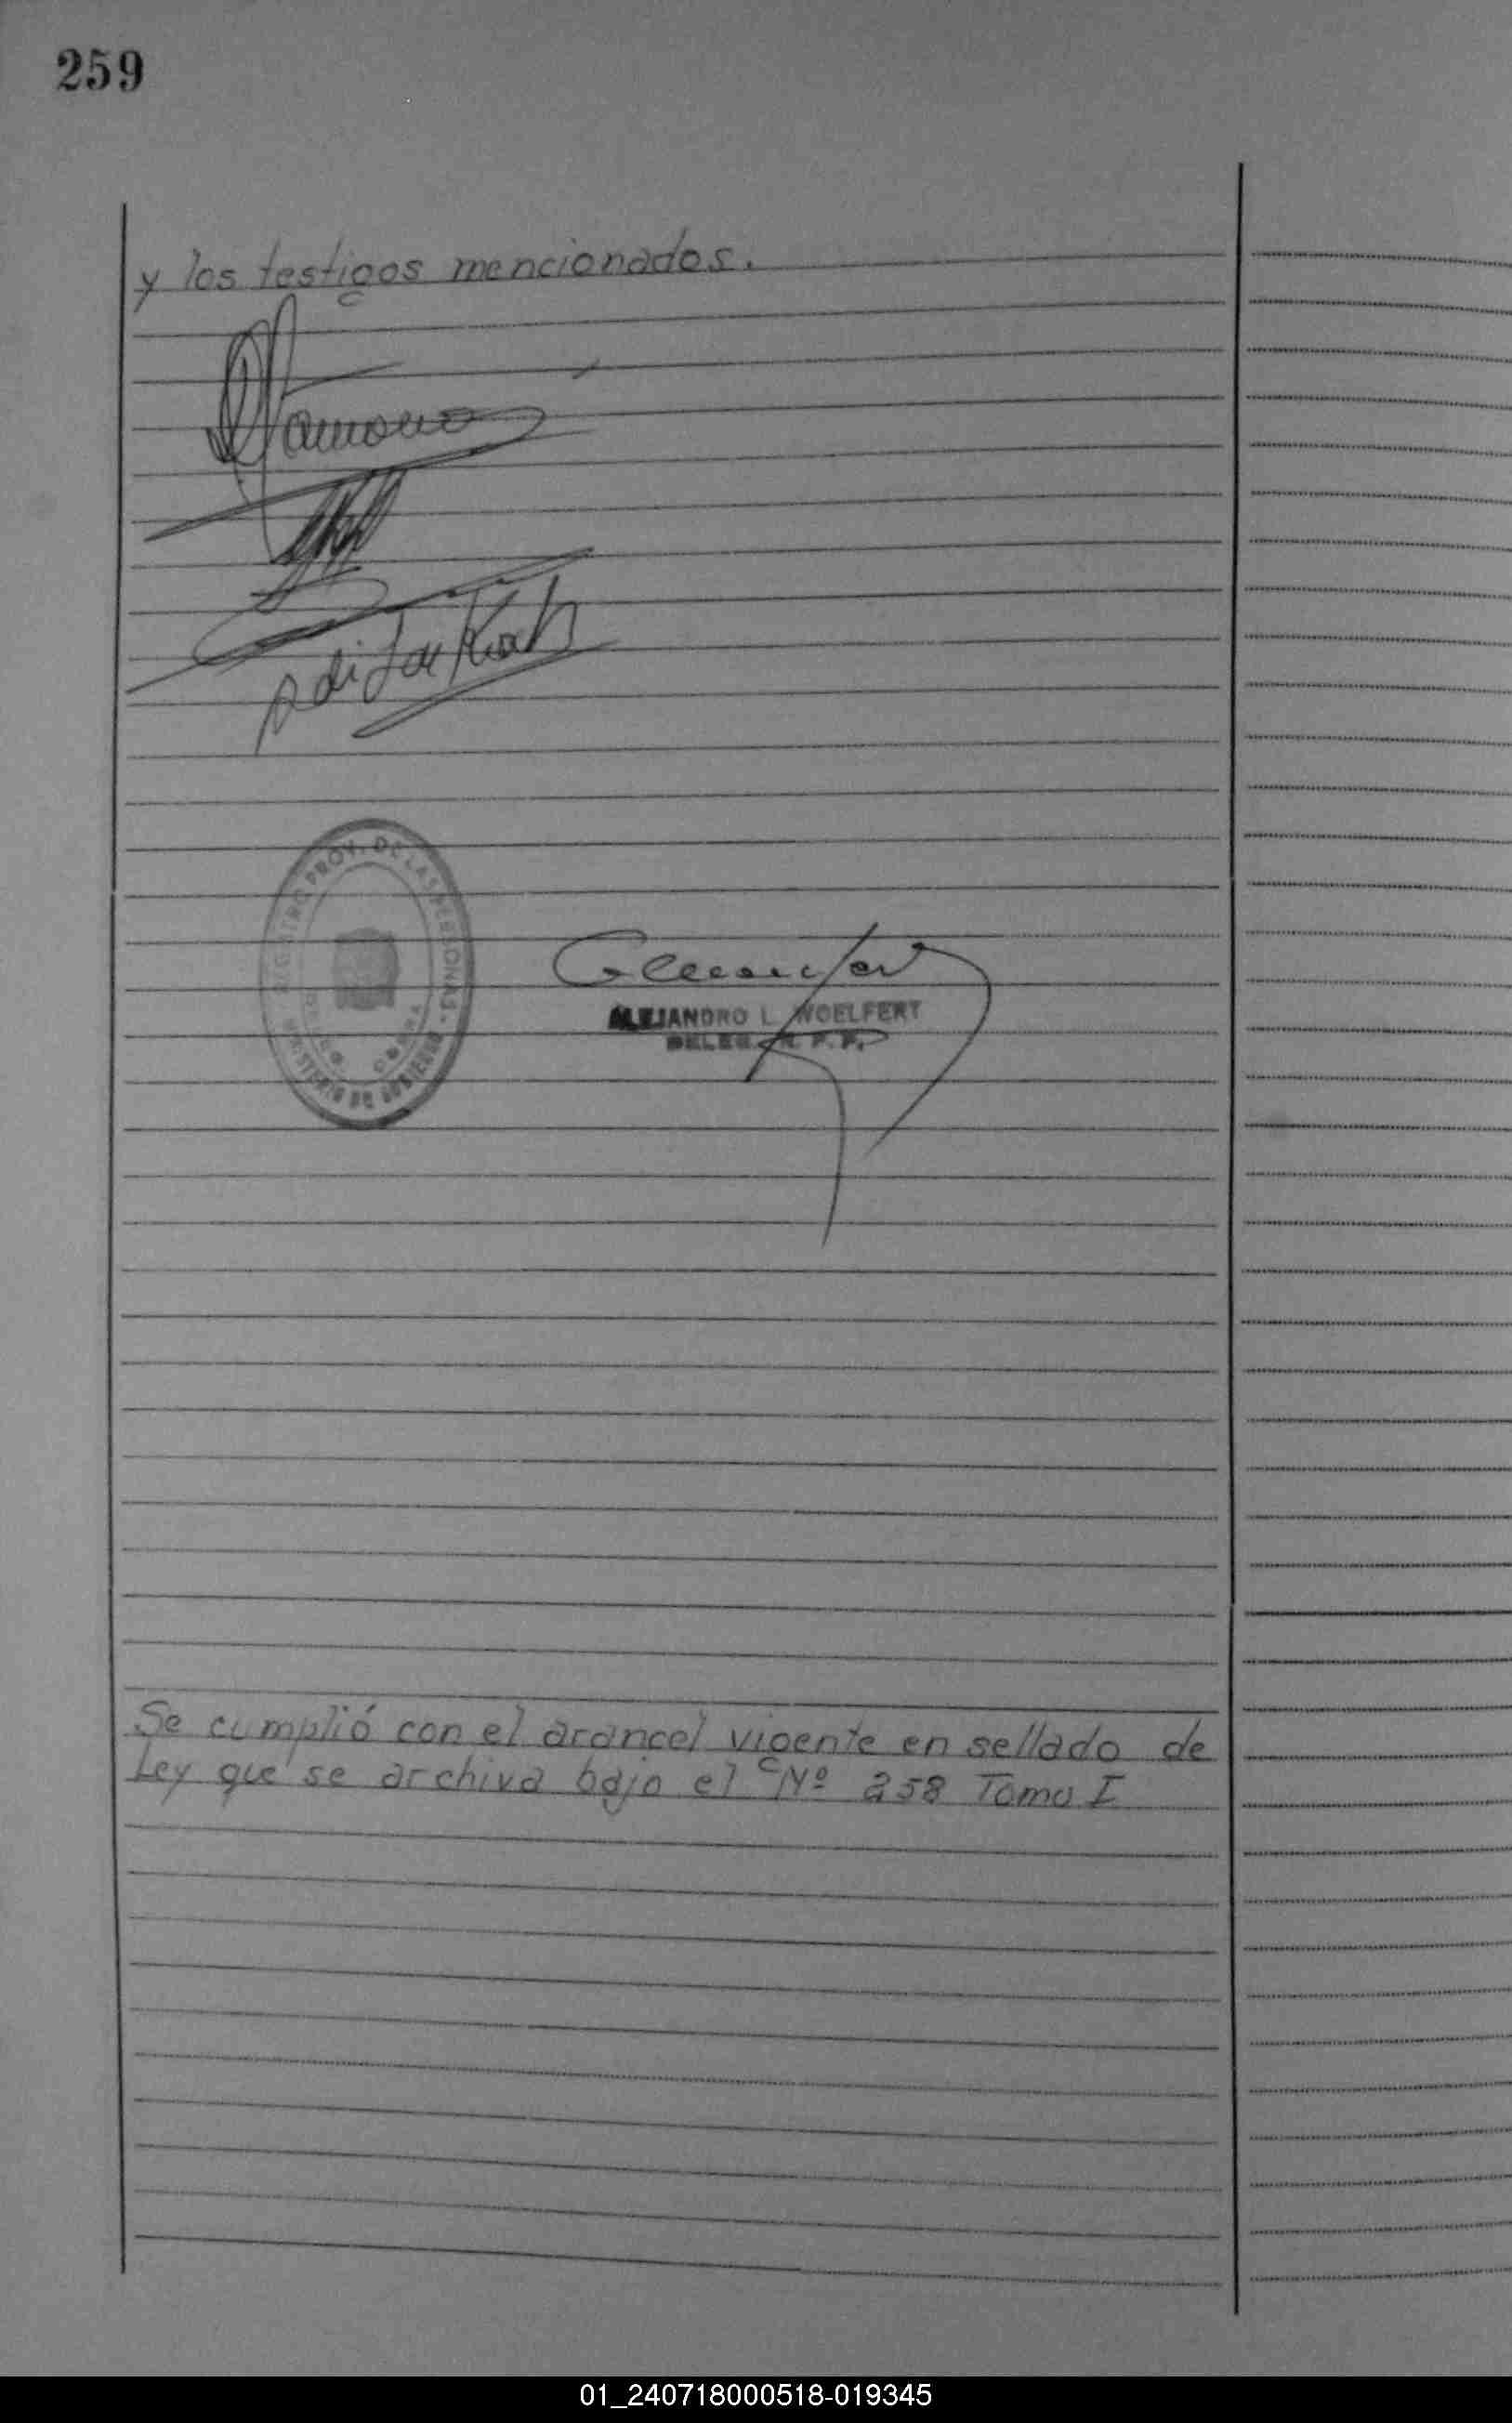 259
y los testigos mencionados.
REGISTRO PROV. DE LAS PERSONAS
MINISTERIO DE GOBIERNO
ALEJANDRO L. WOELFERT
DELEG. R. P. P.
Se cumplió con el arancel vigente en sellado de
Ley que se archiva bajo el Nº 258 Tomo I
01_240718000518-019345